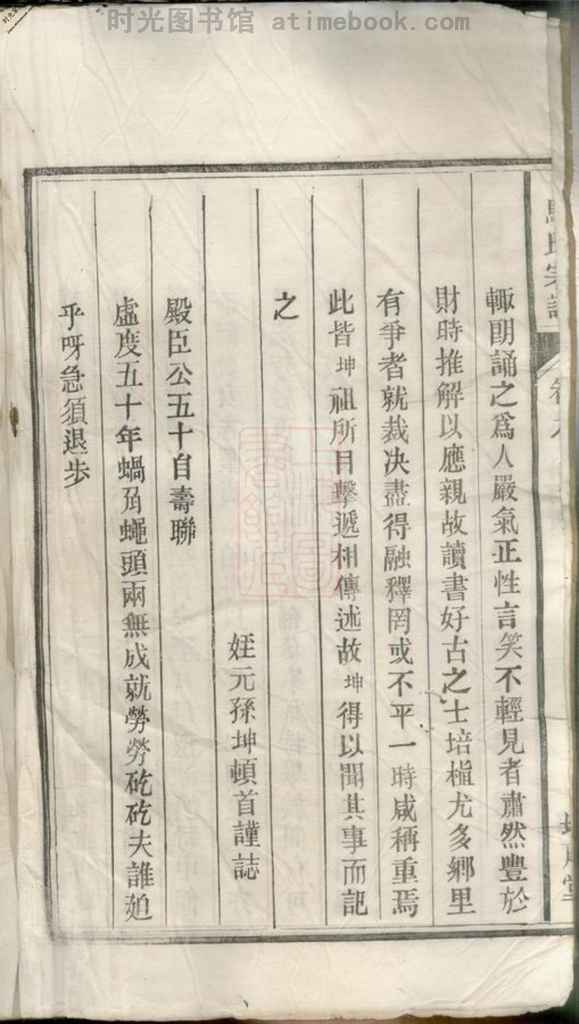 时光图书馆 atimebook.com
氏宗譜
輙朗誦之爲人嚴氣正性言笑不輕見者肅然豐於
財時推解以應親故讀書好古之士培植尤多鄉里
有爭者就裁决盡得融釋罔或不平一時咸稱重焉
此皆坤祖所目擊遞相傳述故坤得以聞其事而記
之
姪元孫坤頓首謹誌
殿臣公五十自壽聯
虛度五十年蝸角蠅頭兩無成就勞勞矻矻夫誰廹
乎呀急須退步